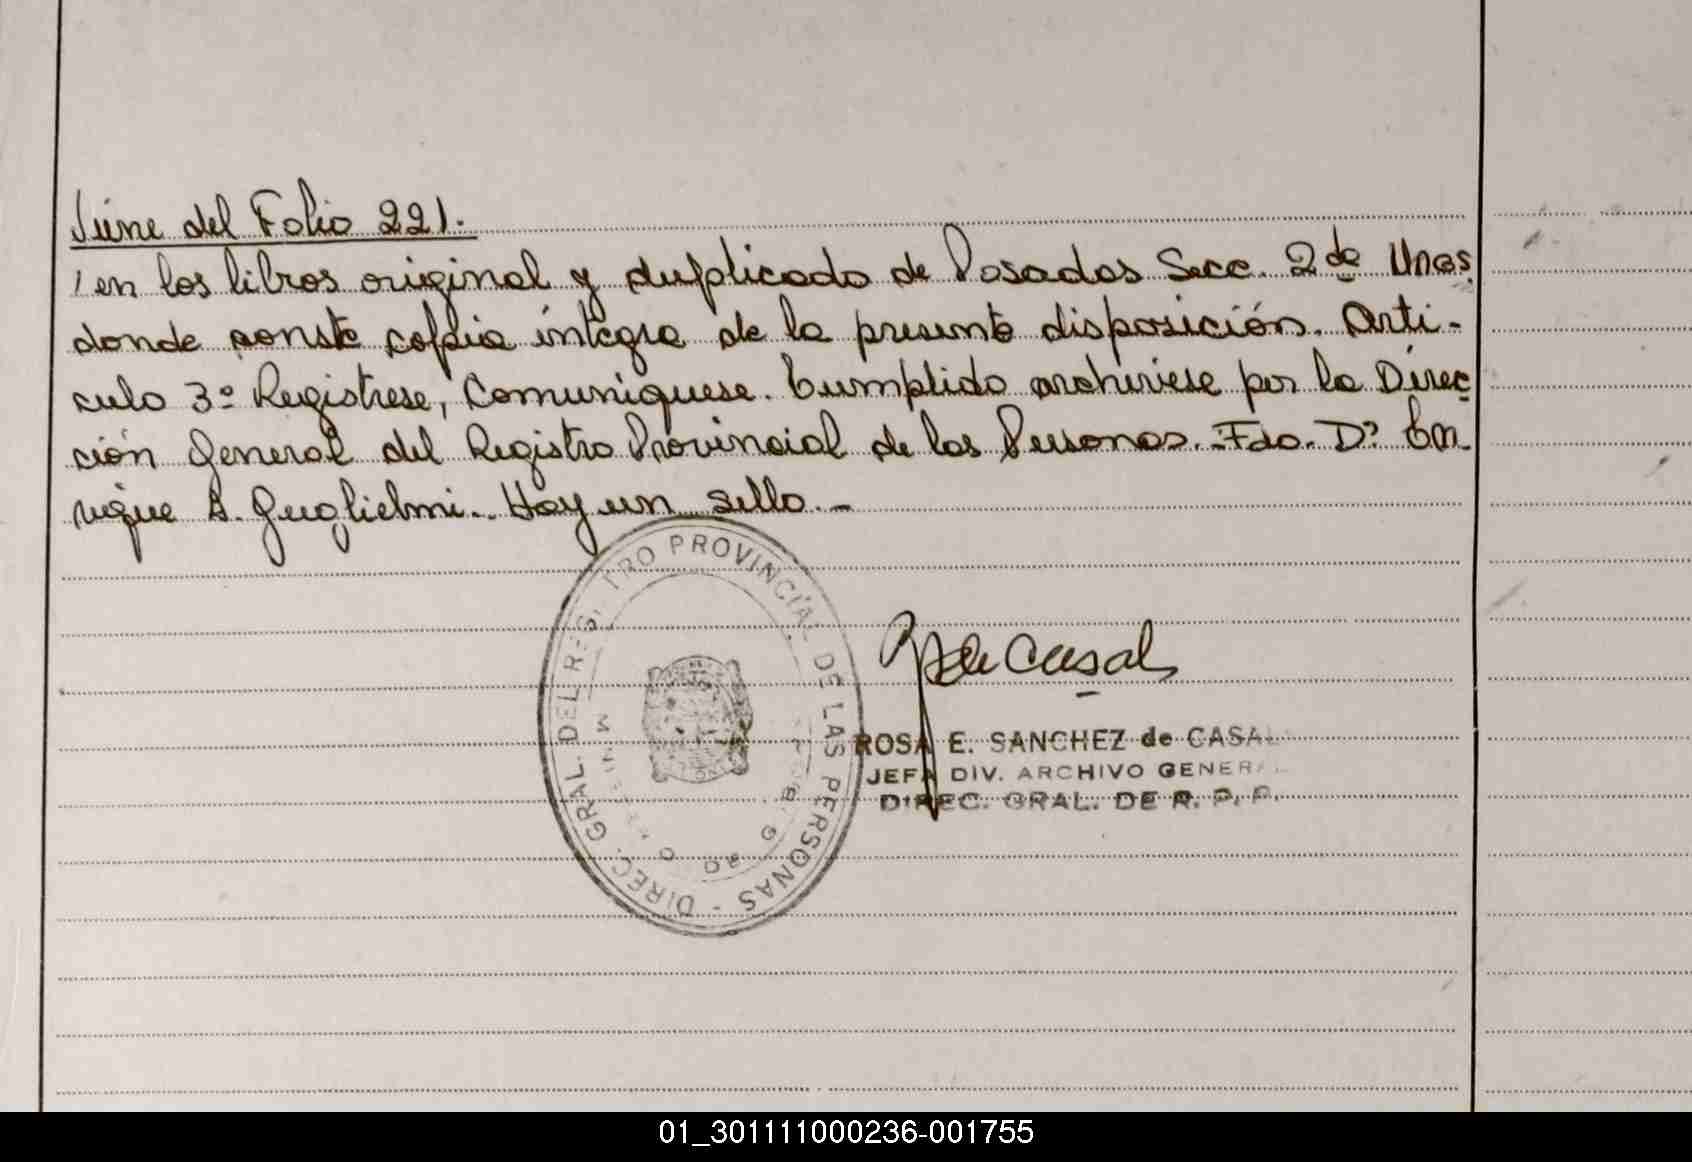 Viene del Folio 221.
/ en los libros original y duplicado de Posadas Secc. 2da Unas
donde conste copia íntegra de la presente disposición. Artí-
culo 3º Regístrese, Comuníquese. Cumplido archívese por la Direc
ción General del Registro Provincial de las Personas. Fdo. Dº En
rique A. Guglielmi. Hay un sello. -
DIREC. GRAL. DEL REGISTRO PROVINCIAL DE LAS PERSONAS -
de Casal
ROSA E. SANCHEZ de CASAL
JEFA DIV. ARCHIVO GENERAL
DIREC. GRAL. DE R. P. P.
01_301111000236-001755